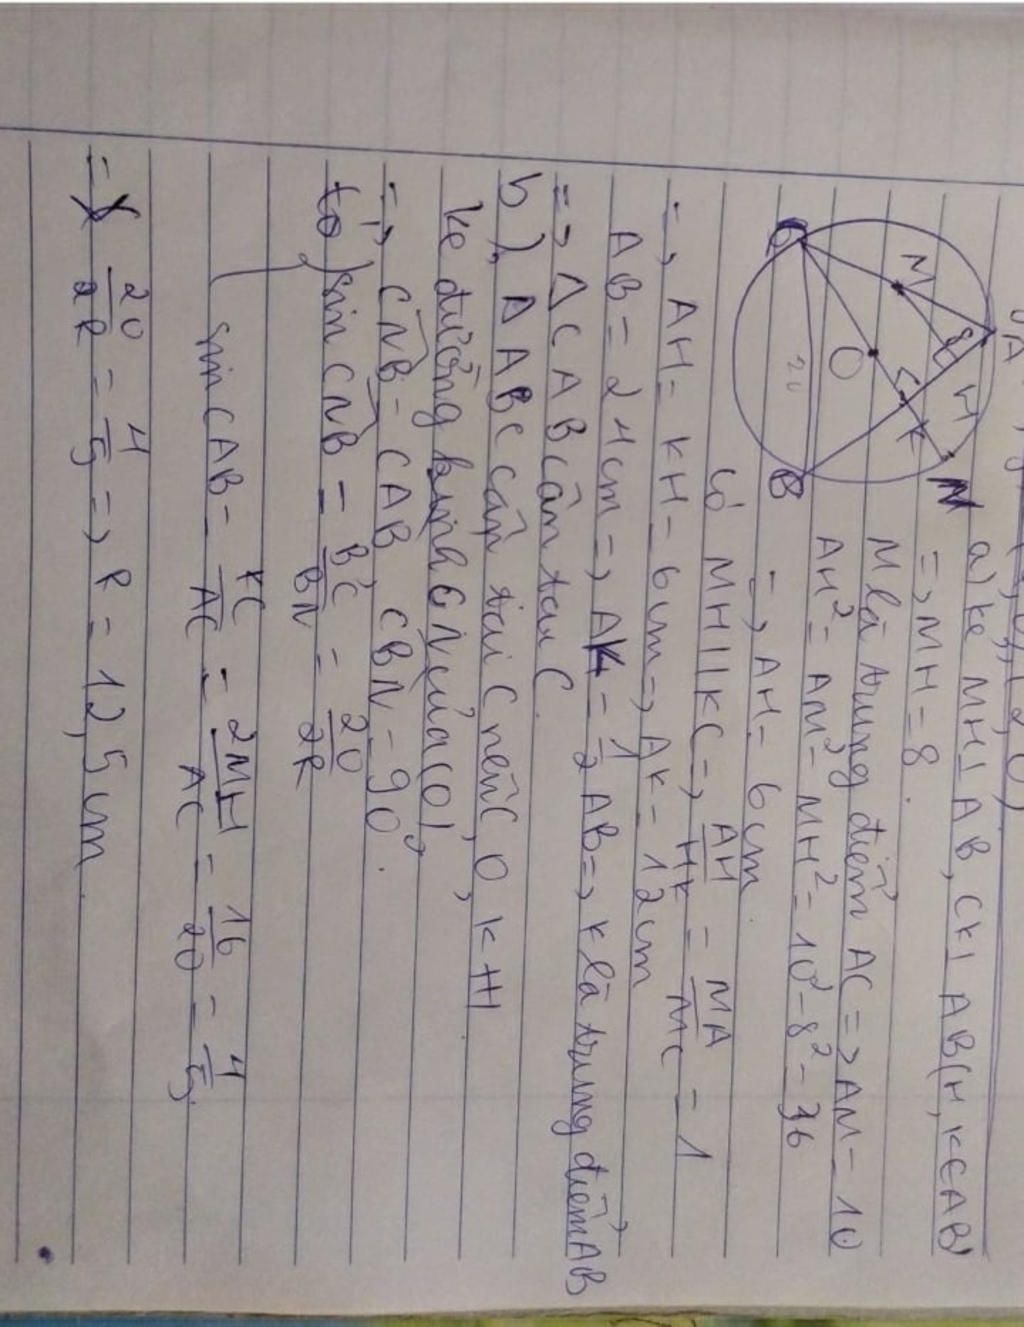 A
M
H
O
K
20
B
N
a) kẻ MH⊥AB, CK⊥AB(H, K∈AB)
=> MH=8.
M là trung điểm AC => AM=10
AH²=AM²-MH²=10²-8²=36
=> AH=6cm
Có MH||KC => AH/HK = MA/MC = 1
=> AH=KH=6cm=> AK=12cm
AB=24cm=> AK=1/2AB=> K là trung điểm AB
=> ΔCAB cân tại C
b) ΔABC cân tại C nên C, O, K tH
kẻ đường kính CN của (O),
=> CNB=CAB, CBN=90°.
sin CNB = BC/BN = 20/2R
sin CAB = KC/AC = 2MH/AC = 16/20 = 4/5.
=> 20/2R = 4/5 => R=12,5cm.